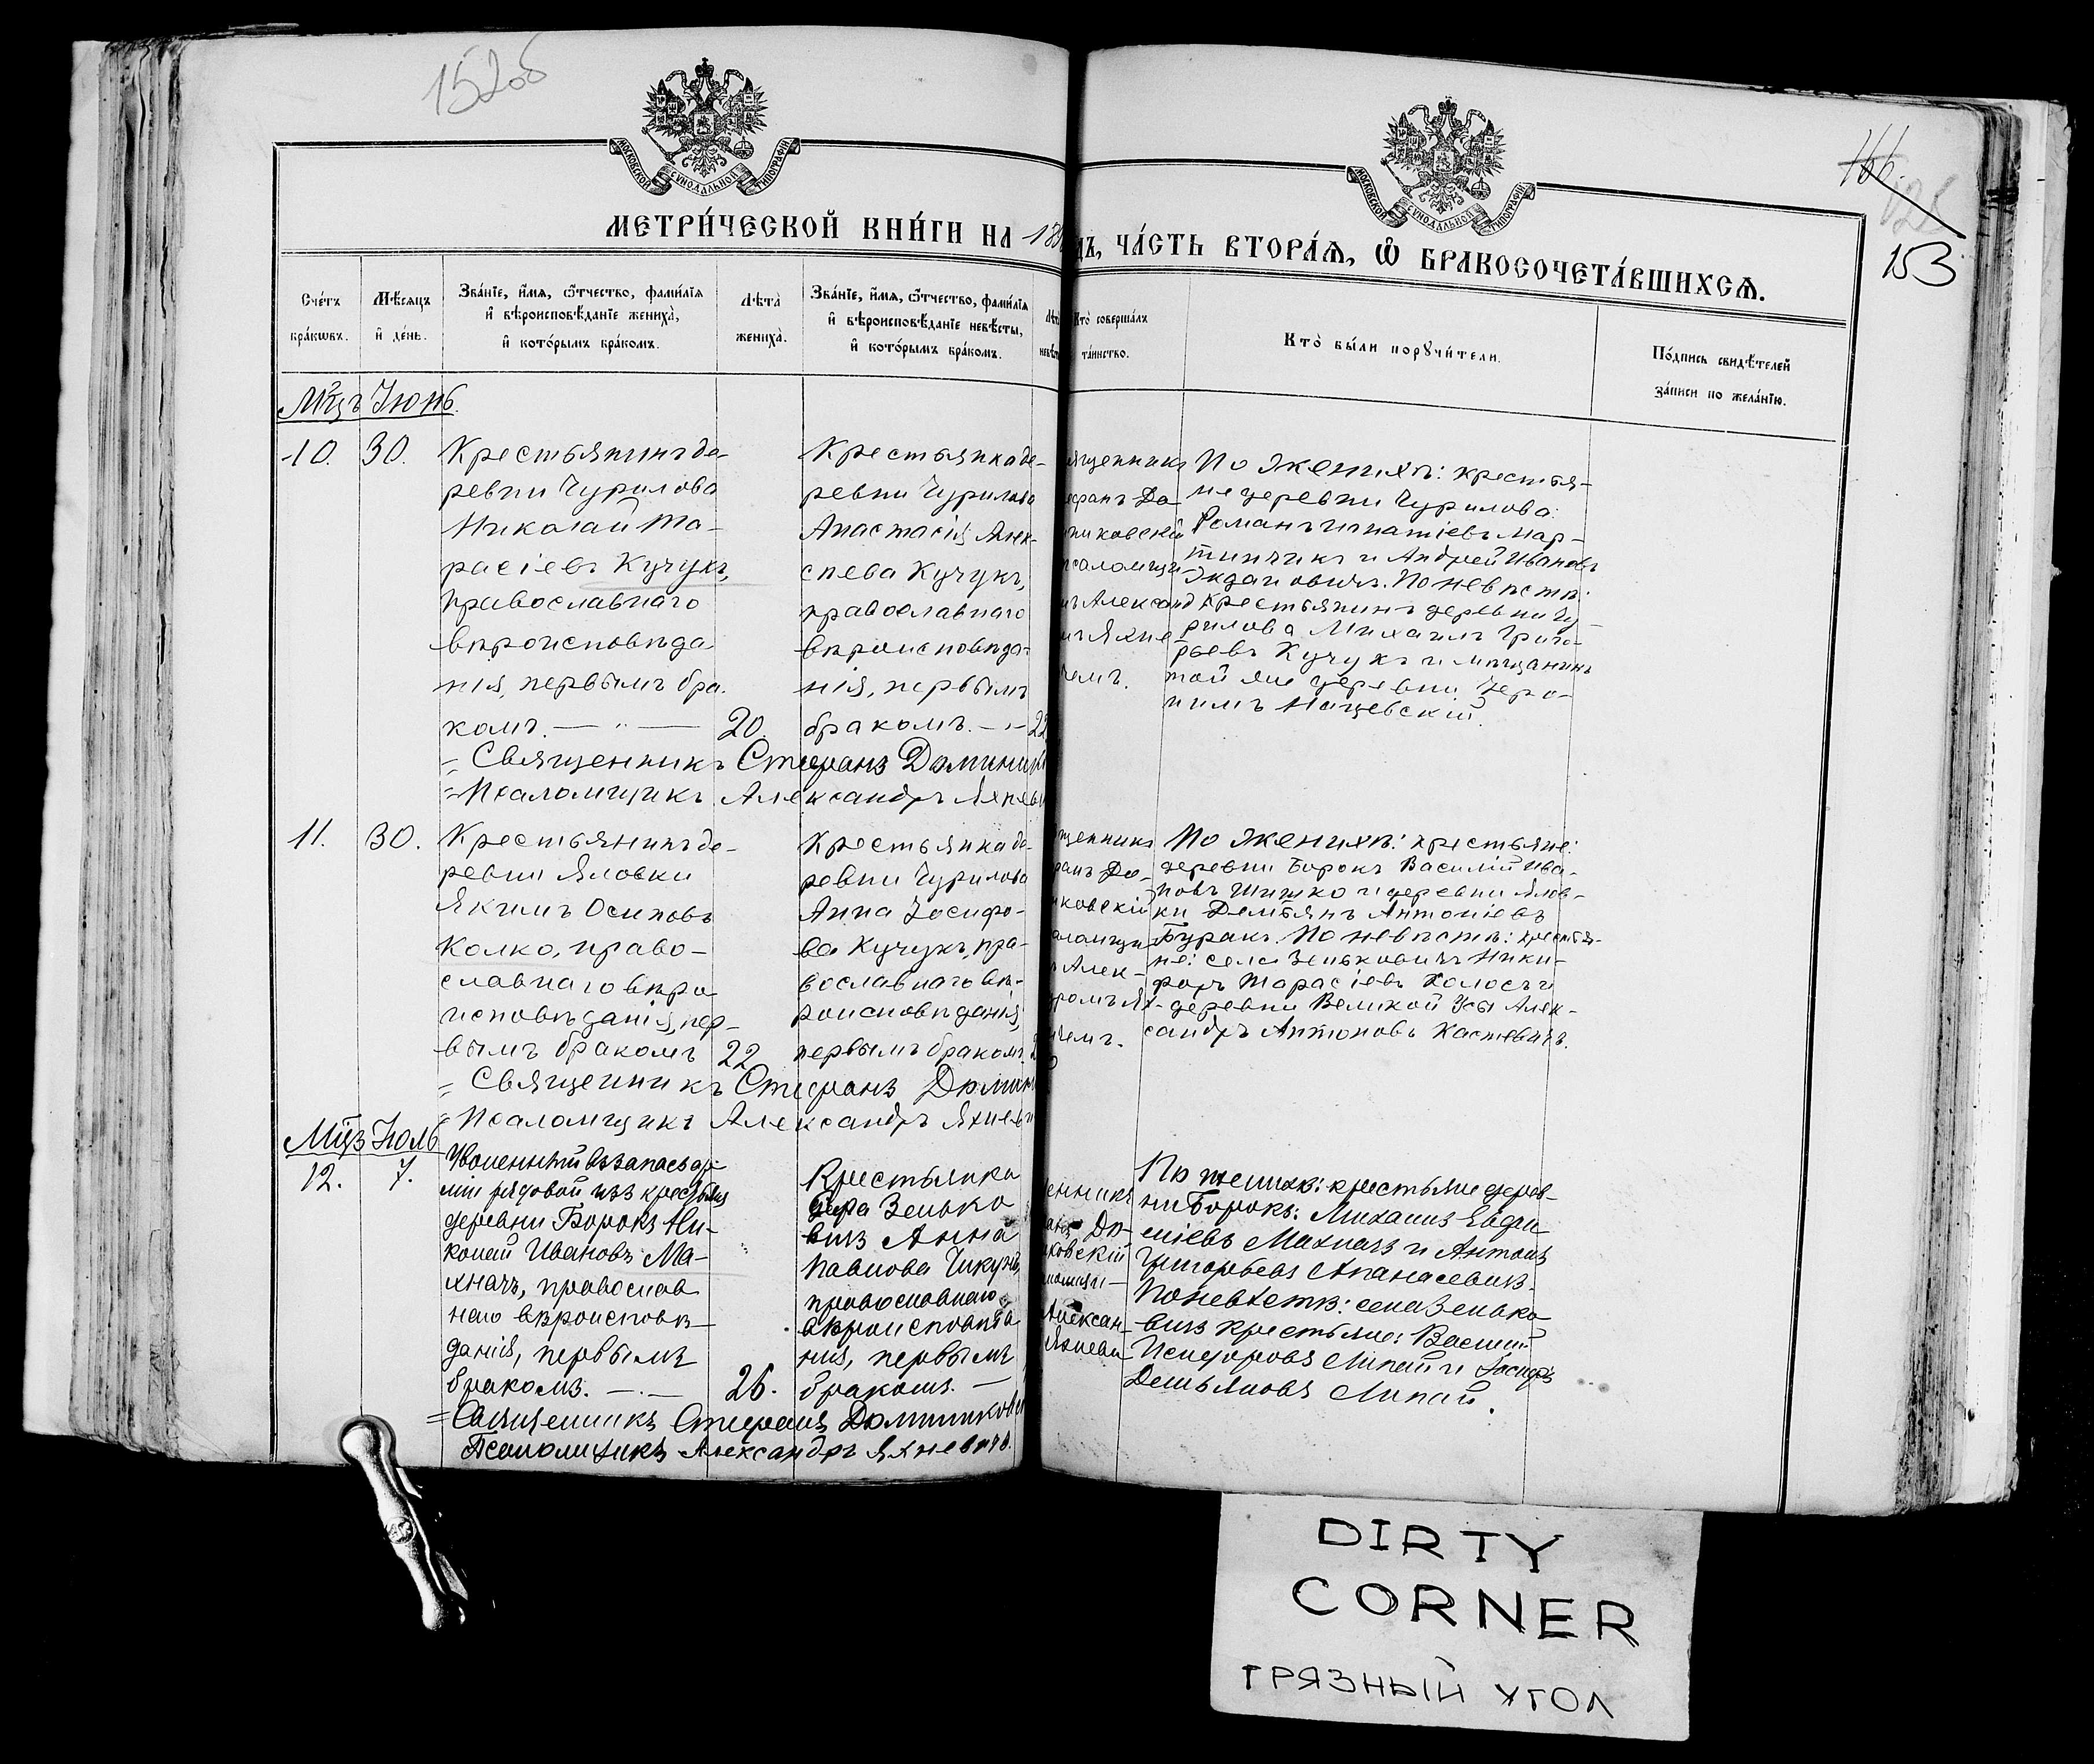 152об
166.
125
153
МОСКОВСКОЙ СУНОДАЛЬНОЙ ТИПОГРАФІИ
МОСКОВСКОЙ СУНОДАЛЬНОЙ ТИПОГРАФІИ
МЕТРИ́ЧЕСКОЙ КНИ́ГИ НА 18
ДЪ, ЧА́СТЬ ВТОРА́Ѧ, Ѽ БРАКОСОЧЕТА́ВШИХСѦ.
Сче́тъ
бра́кѡвъ.
Мѣ́сяцъ
и҆ де́нь.
Зва́нїе, и҆́мѧ, ѻ҆́тчество, фами́лїѧ
и҆ вѣроисповѣ́данїе жениха̀,
и҆ кото́рымъ бра́комъ.
Лѣ́та
жениха̀.
Зва́нїе, и҆́мѧ, ѻ҆́тчество, фами́лїѧ
и҆ вѣроисповѣ́данїе невѣ́сты,
и҆ кото́рымъ бра́комъ.
Лѣ́т
невѣ́ст
Кто̀ соверша́лъ
та́инство.
Кто̀ бы́ли порꙋчи́тели.
По́дпись свидѣ́телей
за́писи по жела́нїю.
Мц̃ъ Іюнь.
10.
30.
Крестьянинъ де-
ревни Чурилова
Николай Та-
расіевъ Кучукъ,
православнаго
вѣроисповѣда-
нія, первымъ бра-
комъ. — „ —
20.
Крестьянка де-
ревни Чурилова
Анастасія Алек-
сѣева Кучукъ,
православнаго
вѣроисповѣда-
нія, первымъ
бракомъ. - „ -
22
ященникъ
ефанъ До-
никовскій
псаломщи
мъ Александ
мъ Яхне
чемъ.
По женихѣ: крестья-
не деревни Чурилова:
Романъ Игнатіевъ Мар-
тинчикъ и Андрей Ивановъ
Ждановичъ. По невѣстѣ:
крестьянинъ деревни Чу-
рилова Михаилъ Григо-
рьевъ Кучукъ и мѣщанинъ
той же деревни Іеро-
нимъ Нацевскій.
= Священникъ Стефанъ Доминик
= Псаломщикъ Александръ Яхневи
11.
30.
Крестьянинъ де-
ревни Яловки
Якимъ Осиповъ
Колко, право-
славнаго вѣро
исповѣданія, пер-
вымъ бракомъ
22
Крестьянка де-
ревни Чурилова
Анна Іосифо-
ва Кучукъ, пра-
вославнаго вѣ-
роисповѣданія,
первымъ бракомъ.
2
щенникъ
ранъ До-
иковскій
аломщи
ъ Алек-
дромъ Ях-
ичемъ.
По женихѣ: крестьяне:
деревни Борокъ Василій Ива-
новъ Шишко и деревни Ялов-
ки Демьянъ Антоніевъ
Буракъ. По невѣстѣ: крестья-
не: села Зеньковичъ Ники-
форъ Тарасіевъ Колосъ и
деревни Великой Усы Алек-
сандръ Антоновъ Кастевичъ.
= Священникъ Стефанъ Домин
= Псаломщикъ Александръ Яхневи
Мц̃ъ Іюль
12.
7.
Уволенный въ запасъ ар-
міи рядовой изъ крестьянъ
деревни Борокъ Ни-
колай Ивановъ Ма-
хначъ, православ
наго вѣроисповѣ-
данія, первымъ
бракомъ. — . —
26.
Крестьянка
села Зенько
вичъ Анна
Павлова Чикунъ,
православнаго
вѣроисповѣда
нія, первымъ
бракомъ. —
енникъ
анъ До-
иковскій
аломщи-
Алексан-
Яхневи
По женихѣ: крестьяне дерев-
ни Борокъ: Михаилъ Евдо
кіевъ Махначъ и Антонъ
Григорьевъ Апанасевичъ.
По невѣстѣ: села Зенько
вичъ крестьяне: Василій
Исидоровъ Липай и Іосифъ
Демьяновъ Липай.
= Священникъ Стефанъ Доминикови
Псаломщикъ Александръ Яхневичъ.
DIRTY
CORNER
ГРЯЗНЫЙ УГОЛ